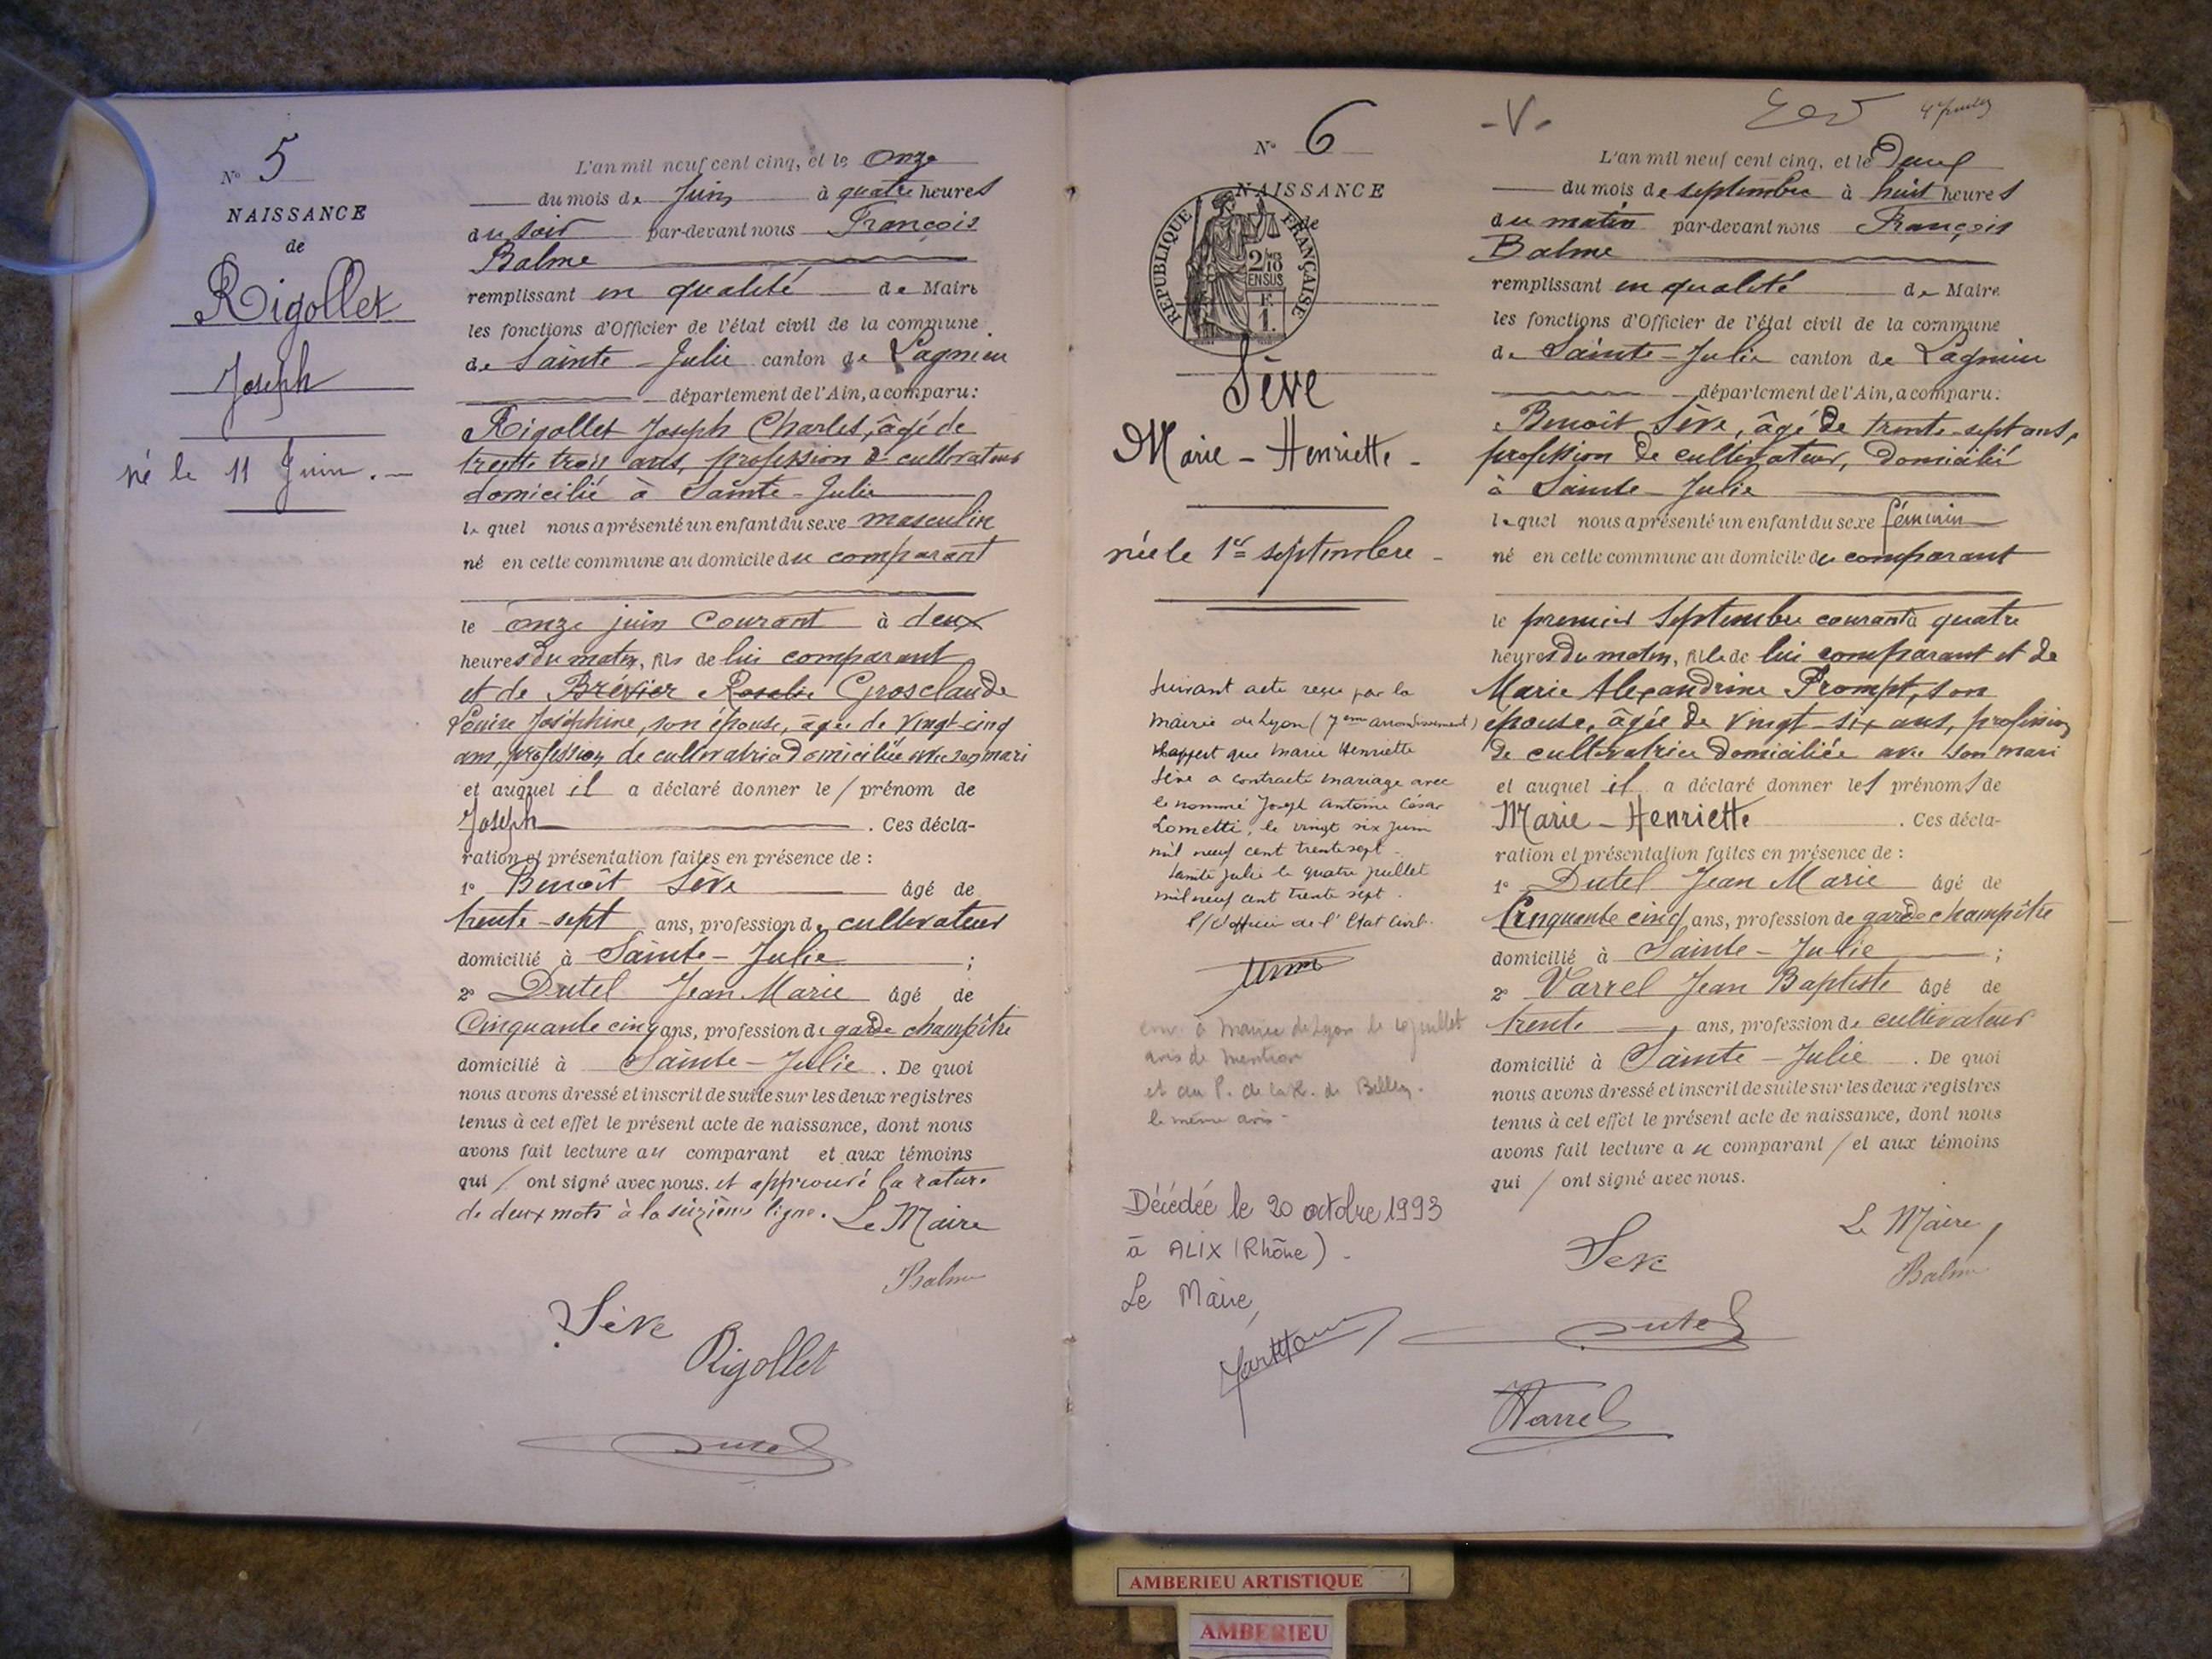 N° 5
NAISSANCE
de
Rigollet
Joseph
né le 11 Juin. —
L'an mil neuf cent cinq, et le onze
du mois de Juin à quatre heures
du soir par-devant nous François
Balme
remplissant en qualité de Maire
les fonctions d'Officier de l'état civil de la commune
de Sainte-Julie canton de Lagnieu
département de l'Ain, a comparu:
Rigollet Joseph Charles, âgé de
trente trois ans, profession de cultivateur
domicilié à Sainte-Julie
lequel nous a présenté un enfant du sexe masculin
né en cette commune au domicile du comparant
le onze juin courant à deux
heures du matin, fils de lui comparant
et de Brévier Rosalie Grosclaude
Louise Joséphine, son épouse, âgée de vingt-cinq
ans, profession de cultivatrice domiciliée avec son mari
et auquel il a déclaré donner le / prénom de
Joseph . Ces décla-
ration et présentation faites en présence de :
1° Benoît Sève âgé de
trente-sept ans, profession de cultivateur
domicilié à Sainte-Julie ;
2° Dutel Jean Marie âgé de
Cinquante cinq ans, profession de garde champêtre
domicilié à Sainte-Julie . De quoi
nous avons dressé et inscrit de suite sur les deux registres
tenus à cet effet le présent acte de naissance, dont nous
avons fait lecture au comparant et aux témoins
qui / ont signé avec nous. et approuvé la rature
de deux mots à la seizième ligne. Le Maire
Balme
Sève
Rigollet
Dutel
N° 6
NAISSANCE
de
REPUBLIQUE FRANÇAISE
2/10
EN SUS
F.
1.
Sève
Marie-Henriette -
née le 1er septembre -
Suivant acte reçu par la
mairie de Lyon (7eme arrondissement)
il appert que Marie Henriette
Sève a contracté mariage avec
le nommé Joseph Antoine César
Lometti, le vingt six juin
mil neuf cent trente sept -
Sainte Julie le quatre juillet
mil neuf cent trente sept.
l'officier de l'Etat Civil.
avis de mention
le même avis -
Décédée le 20 octobre 1993
à ALIX (Rhône) -
Le Maire,
-V-
L'an mil neuf cent cinq, et le Deux
du mois de septembre à huit heures
du matin par-devant nous François
Balme
remplissant en qualité de Maire
les fonctions d'Officier de l'état civil de la commune
de Sainte-Julie canton de Lagnieu
département de l'Ain, a comparu:
Benoît Sève, âgé de trente-sept ans,
profession de cultivateur, domicilié
à Sainte-Julie
lequel nous a présenté un enfant du sexe féminin
né en cette commune au domicile du comparant
le premier Septembre courant à quatre
heures du matin, fille de lui comparant et de
Marie Alexandrine Prompt, son
épouse, âgée de vingt-six ans, profession
de cultivatrice domiciliée avec son mari
et auquel il a déclaré donner les prénoms de
Marie-Henriette . Ces décla-
ration et présentation faites en présence de :
1° Dutel Jean Marie âgé de
Cinquante cinq ans, profession de garde champêtre
domicilié à Sainte-Julie ;
2° Varrel Jean Baptiste âgé de
trente ans, profession de cultivateur
domicilié à Sainte-Julie . De quoi
nous avons dressé et inscrit de suite sur les deux registres
tenus à cet effet le présent acte de naissance, dont nous
avons fait lecture au comparant / et aux témoins
qui / ont signé avec nous.
Le Maire,
Sève
Balme
Dutel
Varrel
AMBERIEU ARTISTIQUE
AMBERIEU